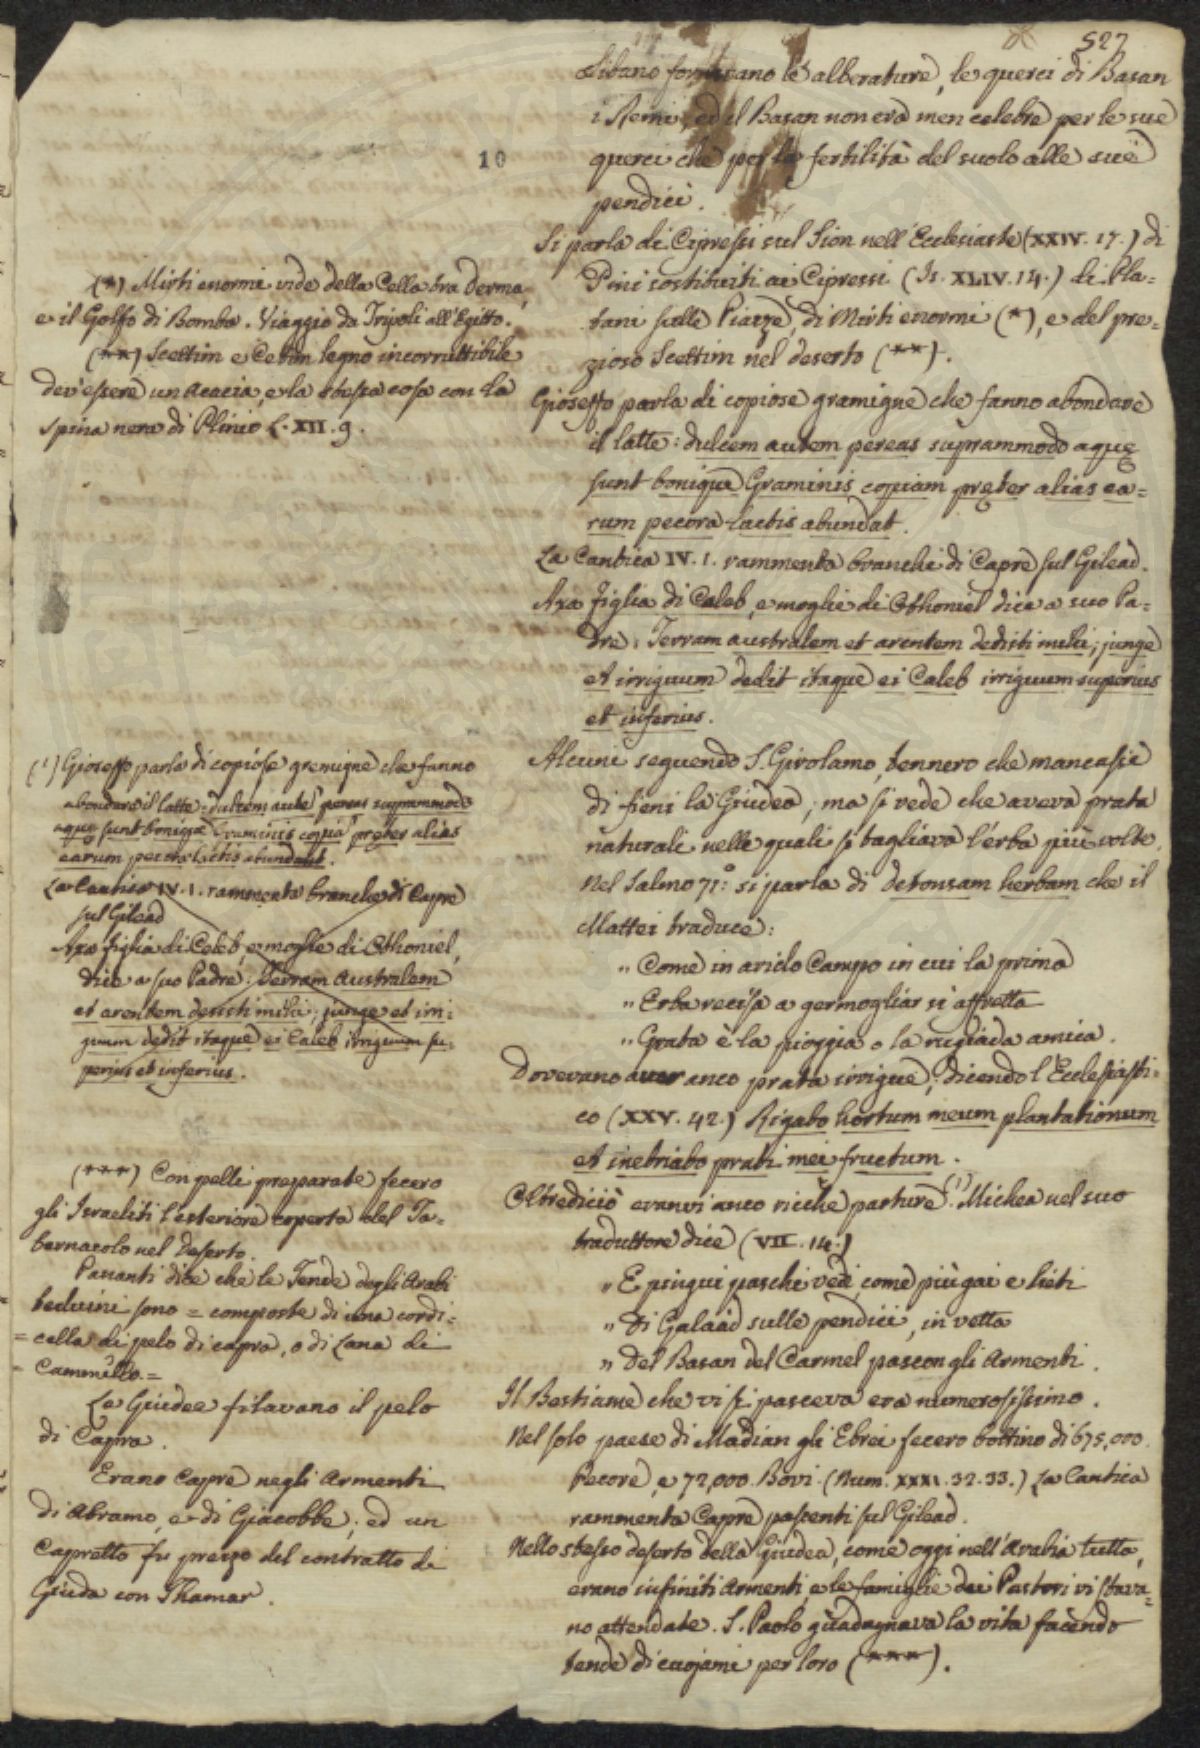 527
10
Libano fornivano le alberature, le querci di Basan
i Remi, ed il Basan non era men celebre per le sue
querci che per la fertilità del suolo alle sue
pendici.
Si parla di Cipressi sul Sion nell'Ecclesiaste (XXIV. 17.) di
Pini sostituiti ai Cipressi (Is. XLIV. 14.) di Pla=
tani sulle Piazze, di Mirti enormi (*), e del pre=
zioso Scettim nel deserto (**).
Gioseffo parla di copiose gramigne che fanno abondare
il latte: dulcem autem pereas suprammodo aquę
sunt bonique Graminis copiam pręter alias ea=
rum pecora lactis abundat.
La Cantica IV. 1. rammenta branchi di Capre sul Gilead.
Axa figlia di Caleb, e moglie di Othoniel dice a suo Pa=
dre: Terram australem et arentem dedisti mihi; junge
et irriguum dedit itaque ei Caleb irriguum superius
et inferius.
Alcuni seguendo S. Girolamo, tennero che mancasse
di fieni la Giudea; ma si vede che aveva prata
naturali nelle quali si tagliava l'erba più volte.
Nel Salmo 71.° si parla di detonsam herbam che il
Mattei traduce:
" Come in arido Campo in cui la prima
" Erba recisa a germogliar si affretta
" Grata è la pioggia o la rugiada amica.
Dovevano aver anco prata irrigue; dicendo l'Ecclesiasti=
co (XXV. 42.) Rigabo hortum meum plantationum
et inebriabo prati mei fructum.
Oltrediciò eranvi anco ricche pasture (1). Michea nel suo
traduttore dice (VII. 14.)
" E pingui paschi vedi, come più gai e lieti
" Di Galaad sulle pendici, in vetta
" Del Basan del Carmel pascon gli Armenti.
Il Bestiame che vi si pasceva era numerosissimo.
Nel solo paese di Madian gli Ebrei fecero bottino di 675,000.
Pecore, e 72,000. Bovi. (Num. XXXI. 32. 33.) La Cantica
rammenta Capre pascenti sul Gilead.
Nello stesso deserto della Giudea, come oggi nell'Arabia tutta,
erano infiniti Armenti, e le famiglie dei Pastori vi stava=
no attendate. S. Paolo guadagnava la vita facendo
tende di cuojami per loro (***).
(*) Mirti enormi vide della Cella tra Derma,
e il Golfo di Bomba. Viaggio da Tripoli all'Egitto.
(**) Scettim e Cetim legno incorruttibile
dev'essere un Acacia, e la stessa cosa con la
spina nera di Plinio L. XII. 9.
(1) Gioseffo parla di copiose gremigne che fanno
abondare il latte: dulcem autē pereas suprammodo
aquę sunt boniqꝫ Graminis copiā pręter alias
earum pecora lactis abundant.
La Cantica IV. 1. rammenta branche di Capre
sul Gilead
Axa figlia di Caleb, e moglie di Othoniel,
dice a suo Padre: Terram Australem
et arentem dedisti mihi; junge et irri=
guum dedit itaque ei Caleb irriguum su=
perius et inferius.
(***) Con pelli preparate fecero
gli Israeliti l'esteriore coperta del Ta=
bernacolo nel deserto.
Pananti dice che le Tende degli Arabi
beduini sono = composte di una cordi=
= cella di pelo di capra, o di Lana di
= Cammello. =
Le Giudee filavano il pelo
di Capra.
Erano Capre negli Armenti
di Abramo, e di Giacobbe; ed un
Capretto fu prezzo del contratto di
Giuda con Thamar.